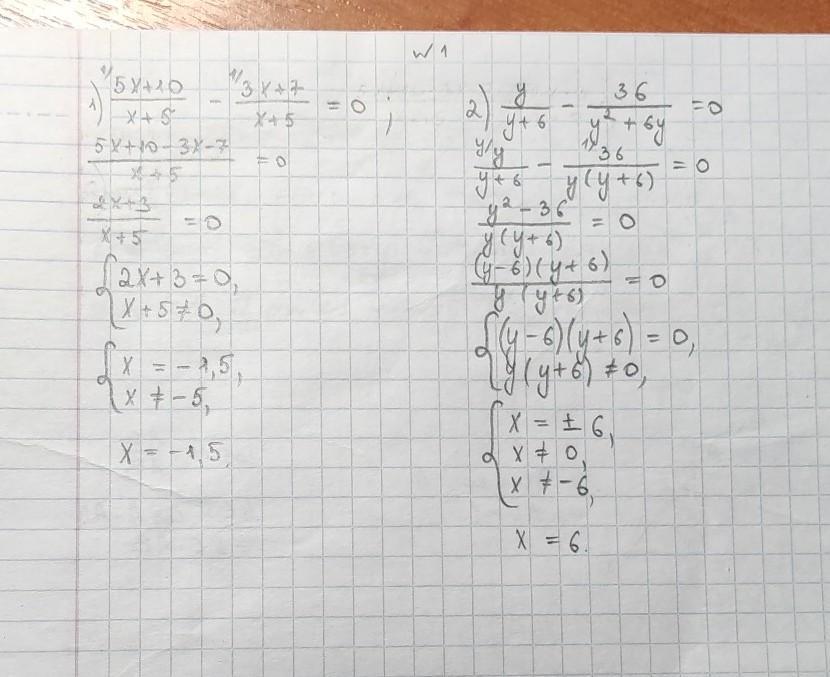 № 1
1) ¹⁾(5x+10)/(x+5) - ¹⁾(3x+7)/(x+5) = 0 ;
(5x+10-3x-7)/(x+5) = 0
(2x+3)/(x+5) = 0
{ 2x+3=0,
x+5≠0,
{ x = -1,5,
x ≠ -5,
x = -1,5.
2) y/(y+6) - 36/(y²+6y) = 0
ʸ⁾y/(y+6) - ¹⁾36/(y(y+6)) = 0
(y²-36)/(y(y+6)) = 0
(y-6)(y+6)/(y(y+6)) = 0
{ (y-6)(y+6) = 0,
y(y+6) ≠ 0,
{ x = ± 6,
x ≠ 0,
x ≠ -6,
x = 6.